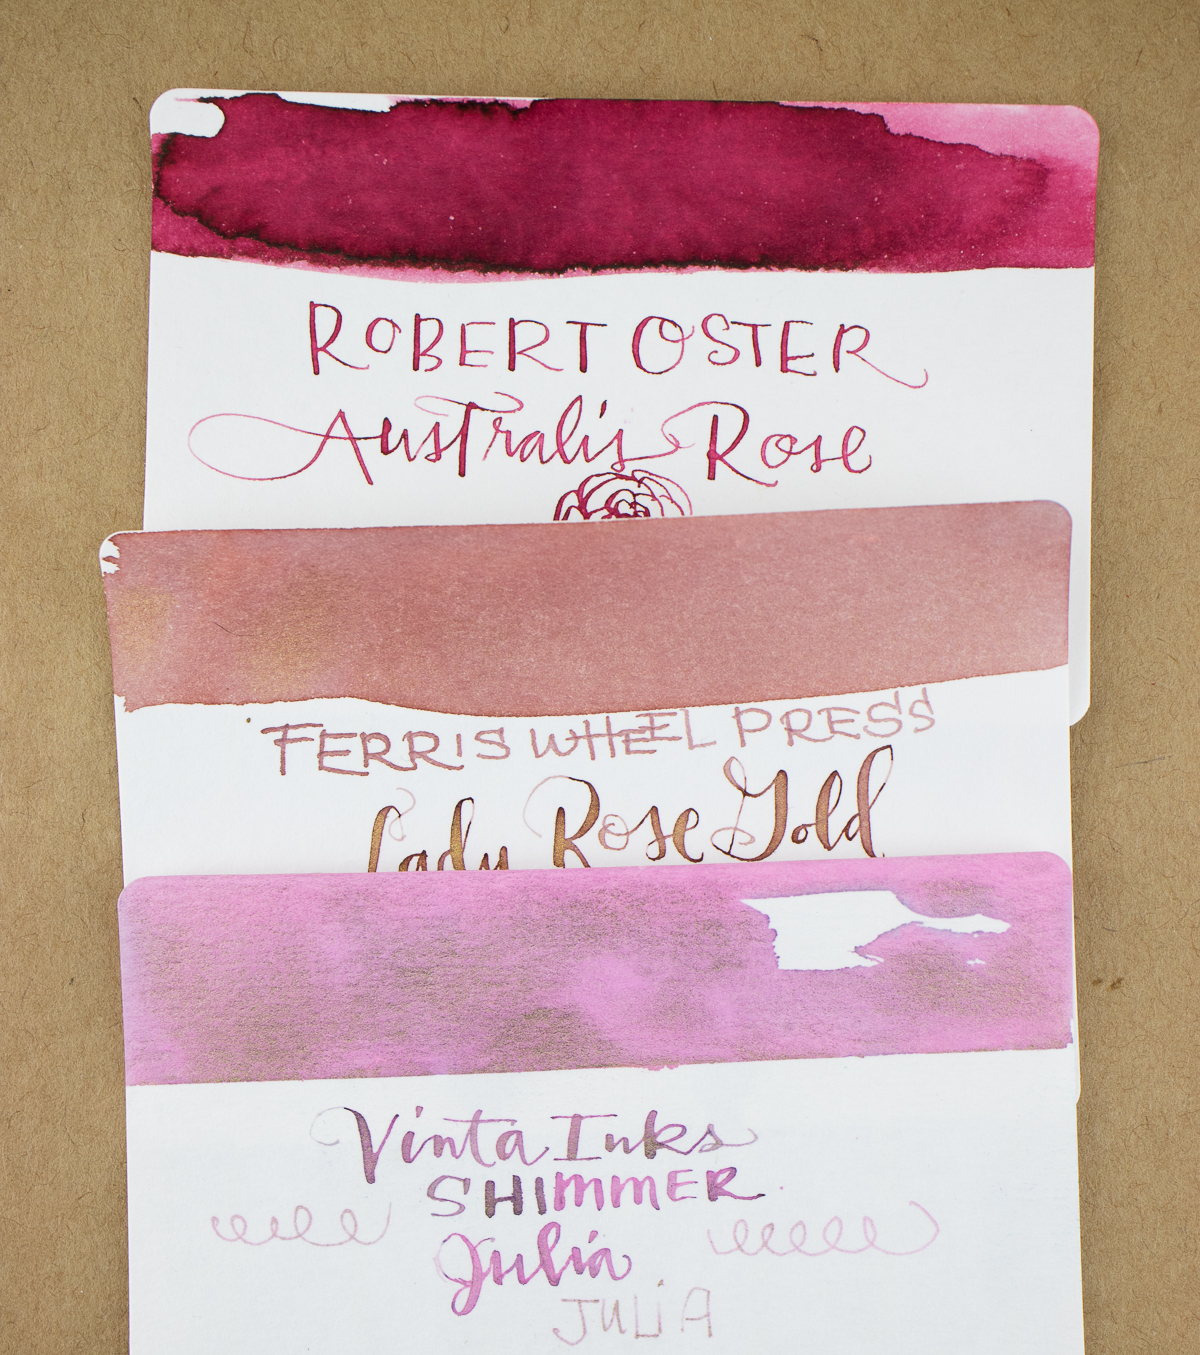 ROBERT OSTER
Australis Rose
FERRIS WHEEL PRESS
Lady Rose Gold
Vinta Inks
SHIMMER
Julia
JULIA